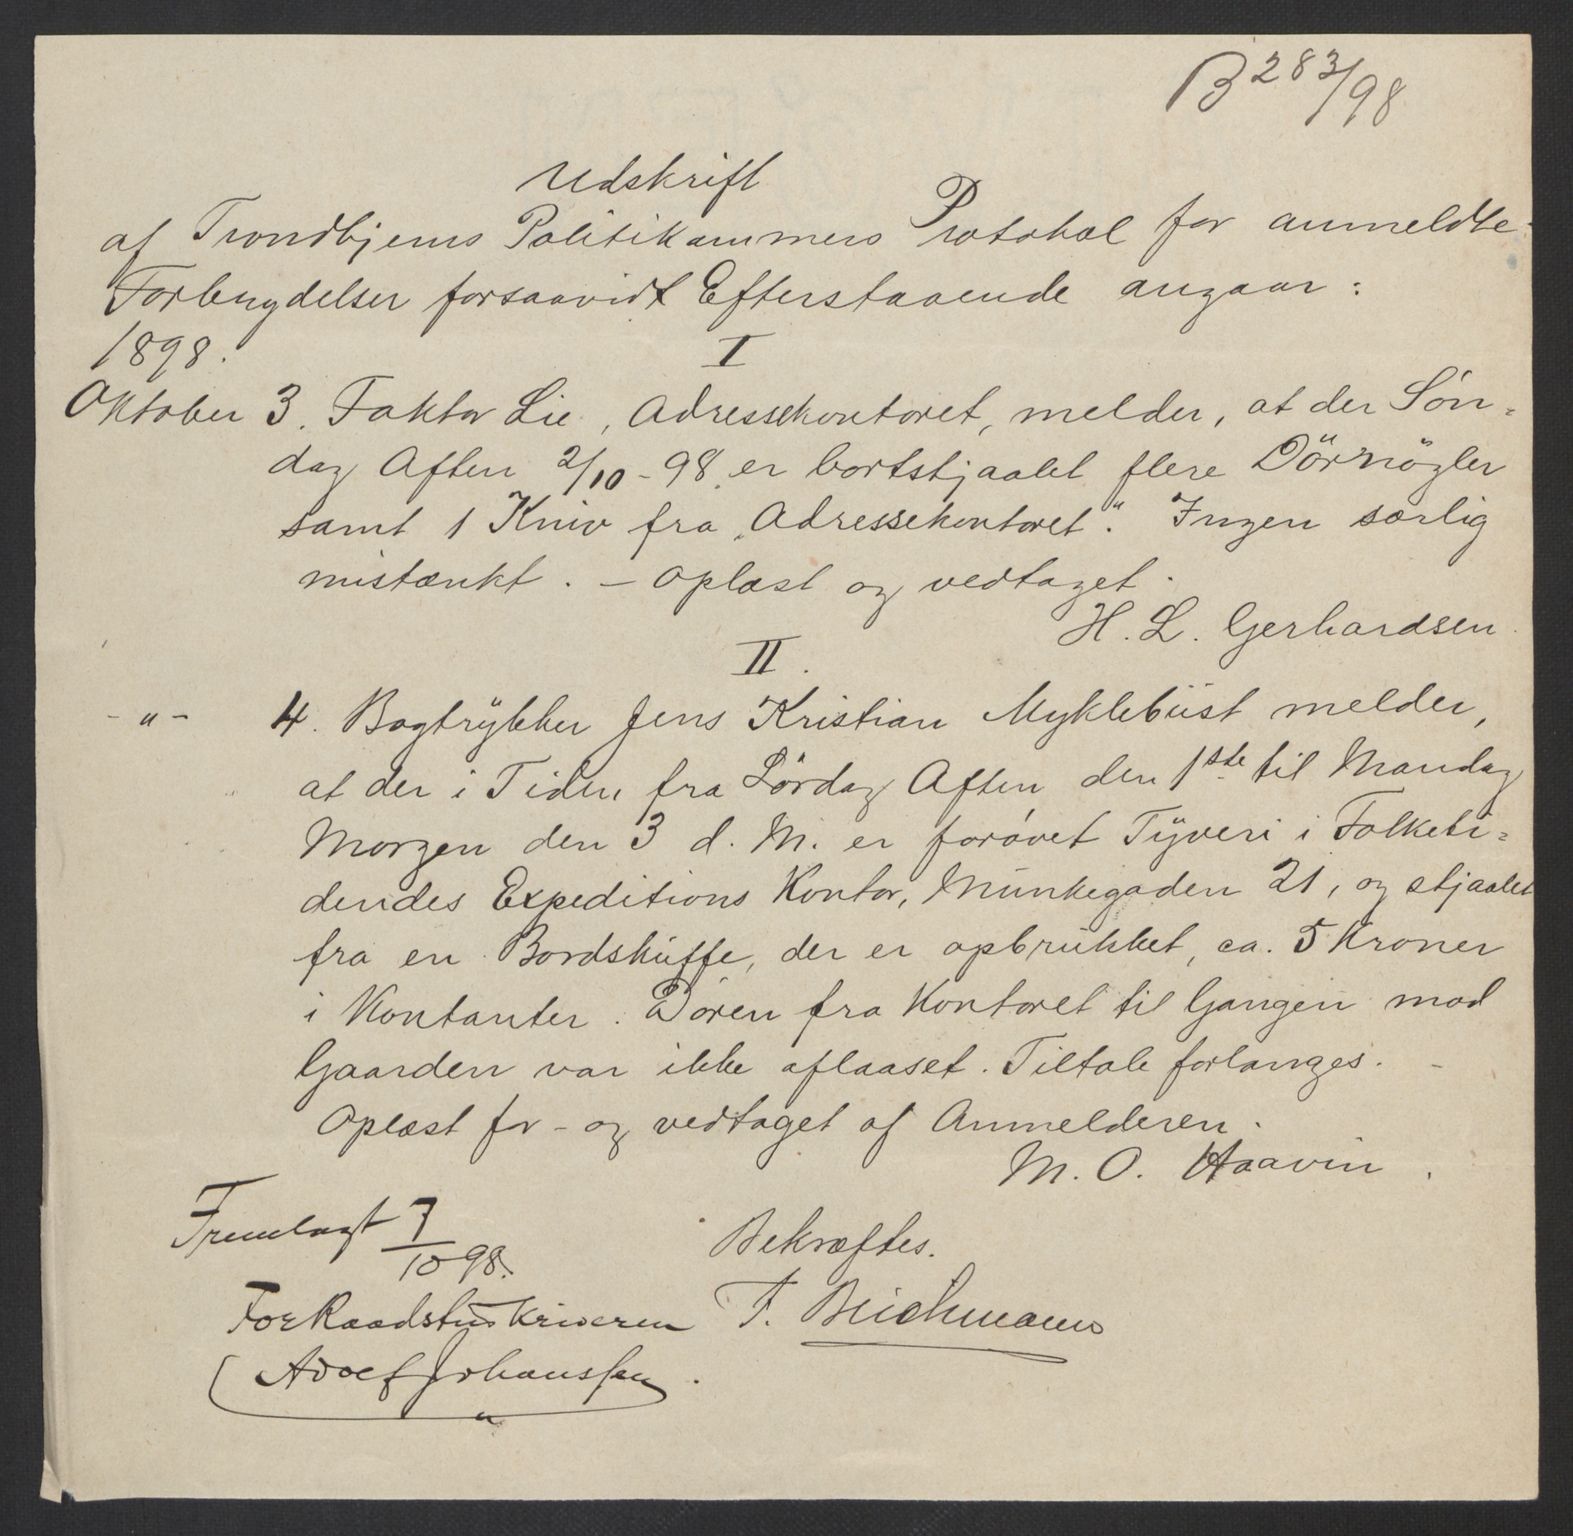 B 283/98
Udskrift
af Trondhjems Politikammers Protokol for anmeldte
Forbrydelser forsaavidt Efterstaaende angaar:
1898.
I
Oktober 3. Faktor Lie, Adressekontoret, melder, at der Søn=
dag Aften 2/10-98 er bortstjaalet flere Dörnögler
samt 1 Kniv fra „Adressekontoret". Ingen særlig
mistænkt. – Oplæst og vedtaget.
H. L. Gerhardsen.
II.
-"- 4. Bogtrykker Jens Kristian Myklebüst melder,
at der i Tiden fra Lördag Aften den 1ste til Mandag
Morgen den 3 d. M. er forøvet Tyveri i Folketi=
dendes Expeditions Kontor, Munkegaden 21, og stjaalet
fra en Bordskuffe, der er opbrukket, ca. 5 Kroner
i Kontanter. Døren fra Kontoret til Gangen mod
Gaarden var ikke aflaaset. Tiltale forlanges. –
Oplæst for - og vedtaget af Anmelderen.
M. O. Haavin.
Fremlagt 7/10 98.
Bekræftes.
For Raadstuskriveren
F. Beichmann
Adolf Johanssen.